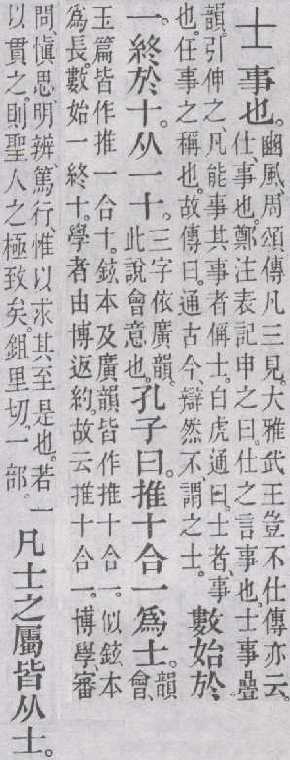 士 事也。豳風、周頌傳凡三見。大雅武王豈不仕傳亦云。
仕、事也。鄭注表記申之曰。仕之言事也。士事曡
韻。引伸之、凡能事其事者偁士。白虎通曰。士者、事
也。任事之稱也。故傳曰。通古今、辯然不、謂之士。數始於
一。終於十。从一十。三字依廣韻。此說會意也。孔子曰。推十合一爲士。韻會、
玉篇皆作推一合十。鉉本及廣韻皆作推十合一。似鉉本
爲長。數始一終十。學者由博返約。故云推十合一。博學、審
問、愼思、明辨、篤行、惟以求其至是也。若一
以貫之。則聖人之極致矣。鉏里切。一部。凡士之屬皆从士。